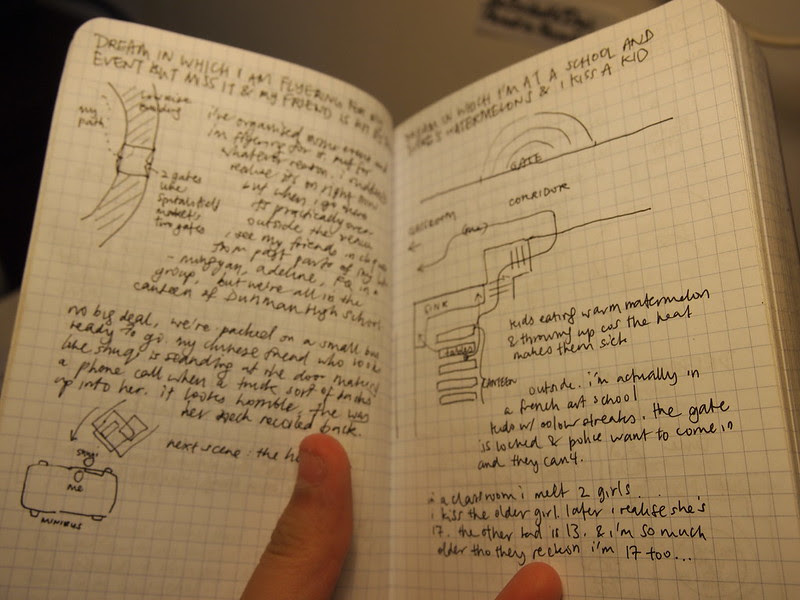 DREAM IN WHICH I AM FLYERING FOR AN
EVENT BUT MISS IT & MY FRIEND IS HIT BY
my path
building
2 gates
like
spitalfields
market's
two gates
i've organised some event and
i'm flyering for it, but for
whatever reason, i suddenly
realise it's on right now
but when i go there
it's practically over.
outside the venue
i see my friends in
from past parts of my life
- mingyan, adeline, in a
group, but we're all in the
canteen of Dunman High School
no big deal, we're packed on a small bus
ready to go. my chinese friend who looks
like shuqi is standing at the door making
a phone call when a truck sort of backs
up into her. it looks horrible. the way
her neck recoiled back.
next scene: the
shuqi
me
MINIBUS
DREAM IN WHICH I'M AT A SCHOOL AND
WATERMELONS & I KISS A KID
GATE
CORRIDOR
CLASSROOM
(me)
SINK
tables
CANTEEN
kids eating warm watermelon
& throwing up cos the heat
makes them sick
outside. i'm actually in
a french art school
kids w/ colour streaks. the gate
is locked & police want to come in
and they can't.
in a classroom i meet 2 girls.
i kiss the older girl. later i realise she's
17. the other kid is 13. & i'm so much
older tho they reckon i'm 17 too...